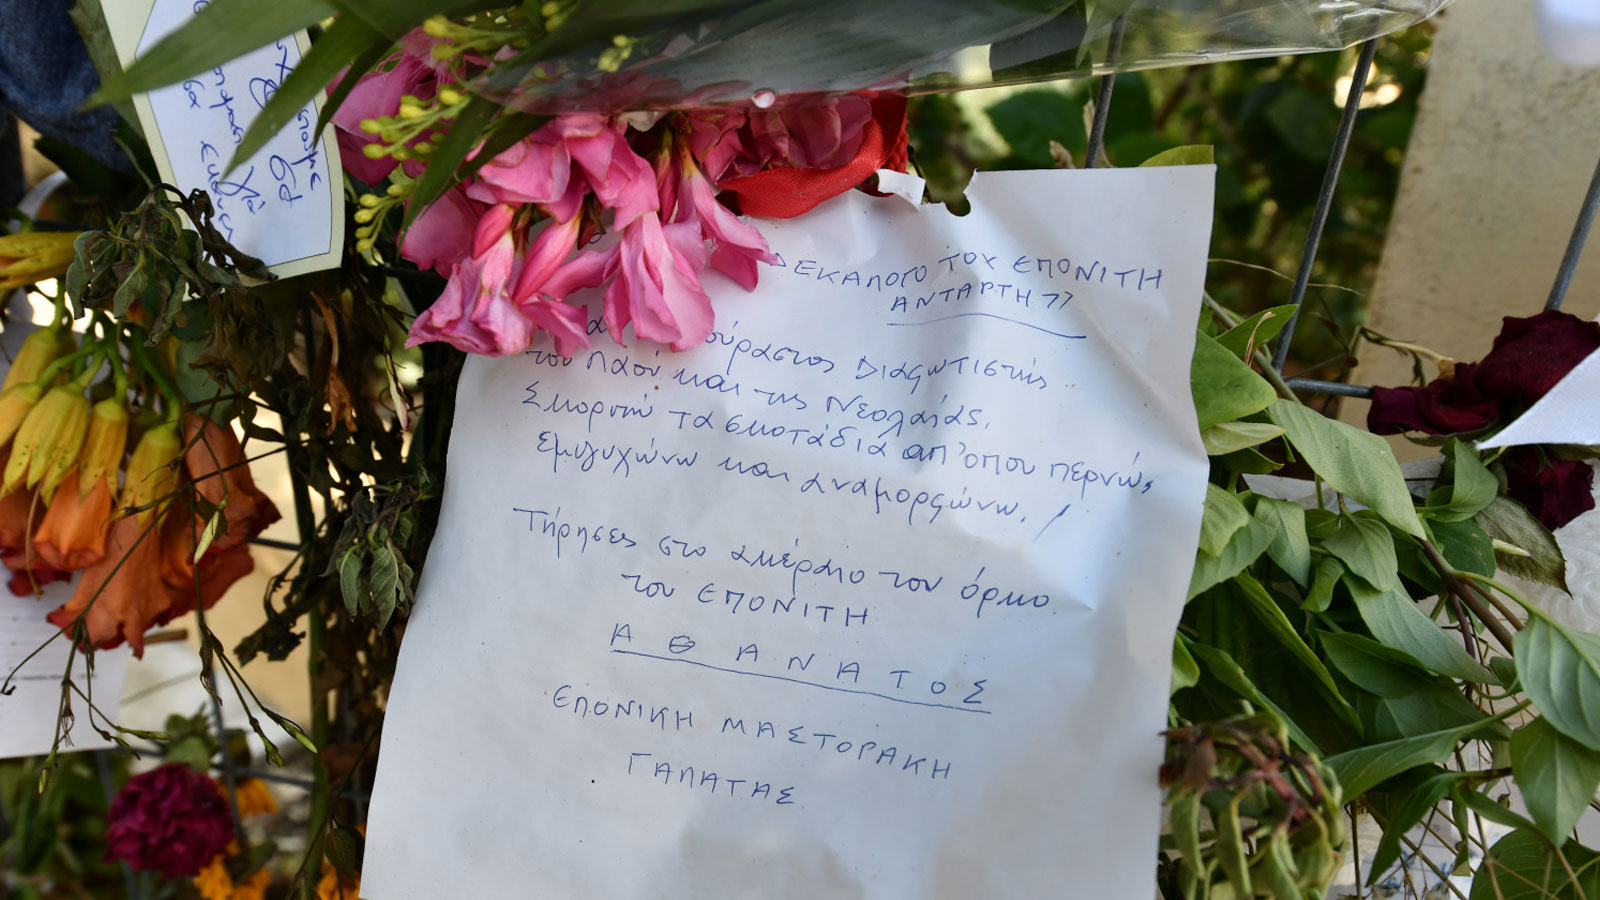 σα εκανε
ΔΕΚΑΛΟΓΟ ΤΟΥ ΕΠΟΝΙΤΗ
ΑΝΤΑΡΤΗ ״
ούραστος Διαφωτιστής
του Λαού και της Νεολαίας.
Σκορπώ τα σκοτάδια απ'οπου περνώ,
εμψυχώνω και αναμορφώνω. !
Τήρησες στο ακέραιο τον όρκο
του ΕΠΟΝΙΤΗ
ΑΘΑΝΑΤΟΣ
ΕΠΟΝΙΚΗ ΜΑΣΤΟΡΑΚΗ
ΓΑΛΑΤΑΣ